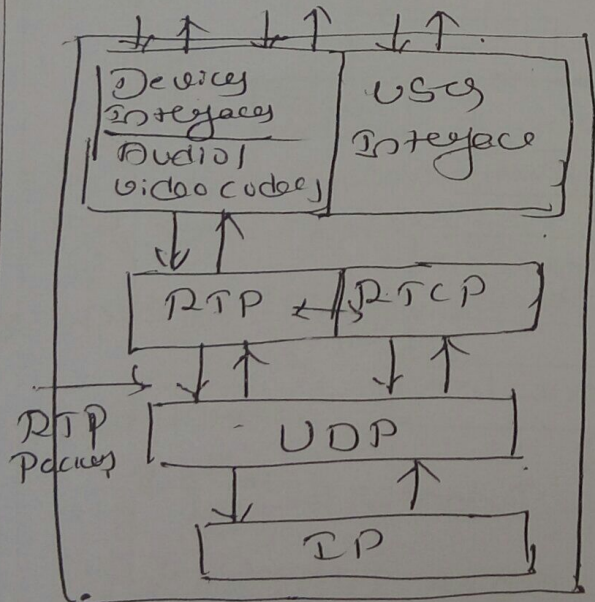 Devices
Interfaces
Audio/
video codecs
User
Interface
RTP
RTCP
RTP
Packets
UDP
IP